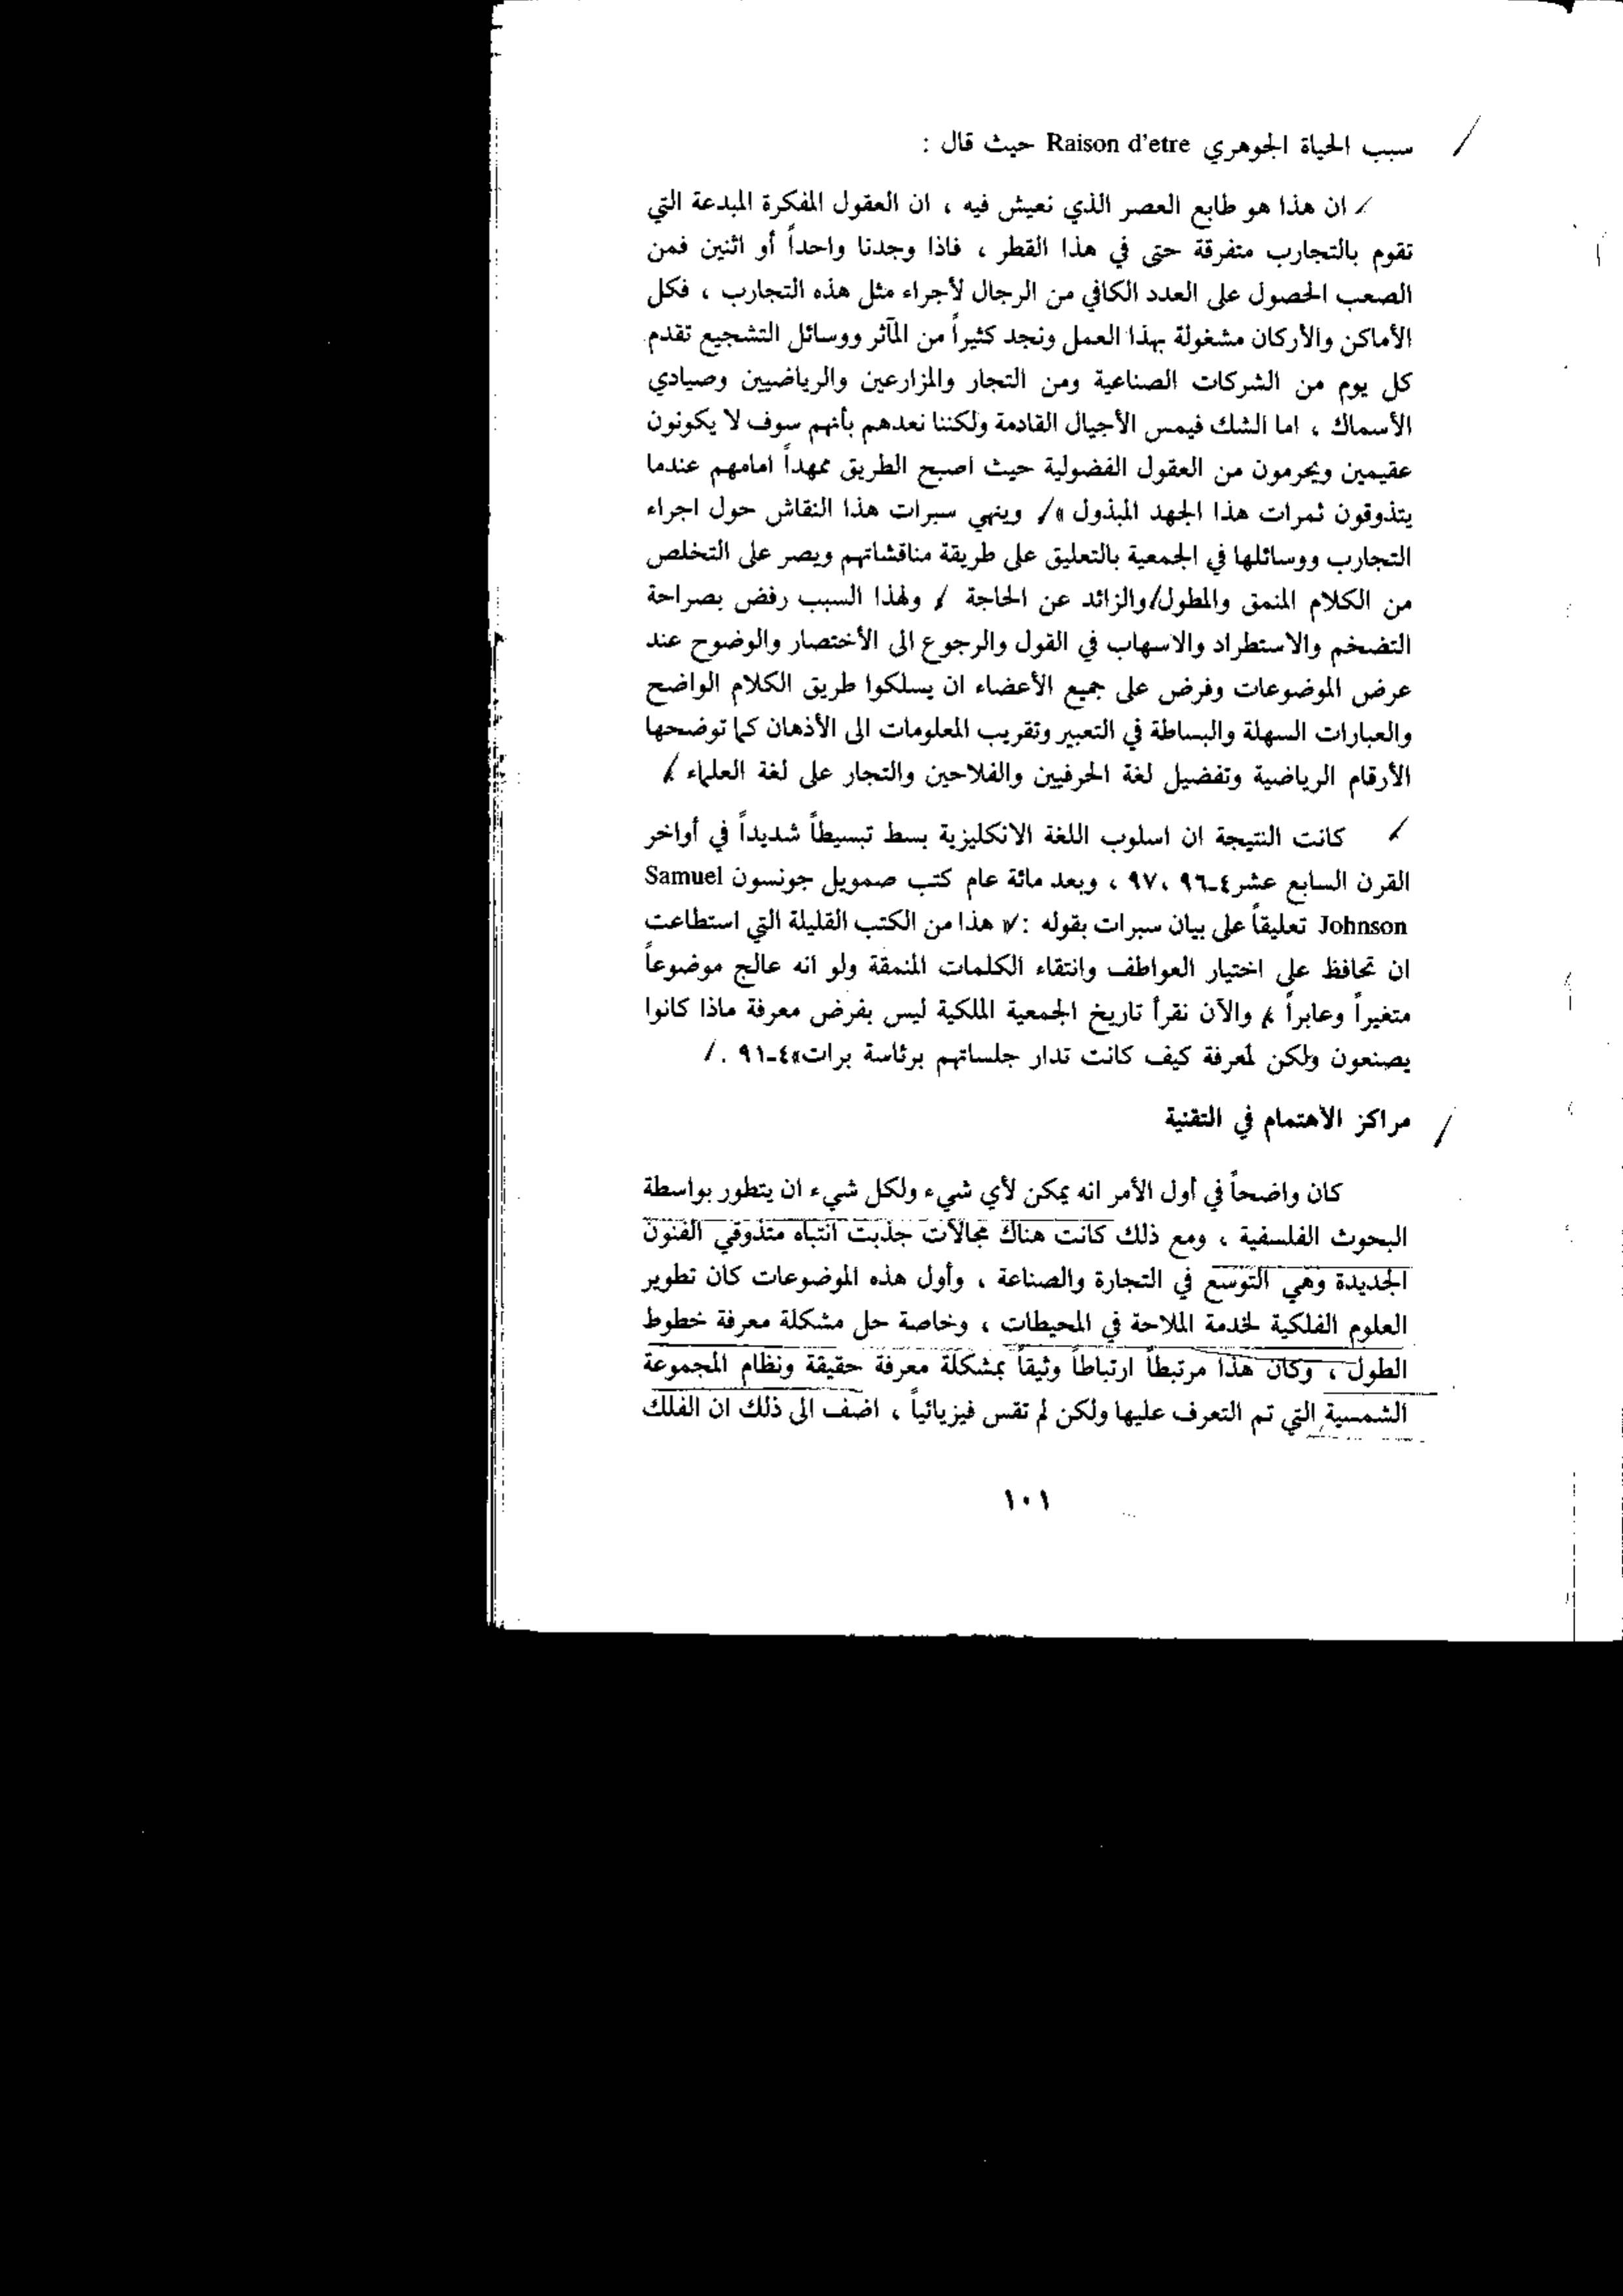 سبب الحياة الجوهري Raison d'etre حيث قال :
ان هذا هو طابع العصر الذي نعيش فيه ، ان العقول المفكرة المبدعة التي
تقوم بالتجارب متفرقة حتى في هذا القطر ، فاذا وجدنا واحداً أو اثنين فمن
الصعب الحصول على العدد الكافي من الرجال لأجراء مثل هذه التجارب ، فكل
الأماكن والأركان مشغولة بهذا العمل ونجد كثيراً من المآثر ووسائل التشجيع تقدم
كل يوم من الشركات الصناعية ومن التجار والمزارعين والرياضيين وصيادي
الأسماك ، اما الشك فيمس الأجيال القادمة ولكننا نعدهم بأنهم سوف لا يكونون
عقيمين ويحرمون من العقول الفضولية حيث اصبح الطريق ممهداً امامهم عندما
يتذوقون ثمرات هذا الجهد المبذول » وينهي سبرات هذا النقاش حول اجراء
التجارب ووسائلها في الجمعية بالتعليق على طريقة مناقشاتهم ويصر على التخلص
من الكلام المنمق والمطول والزائد عن الحاجة ولهذا السبب رفض بصراحة
التضخم والاستطراد والاسهاب في القول والرجوع الى الأختصار والوضوح عند
عرض الموضوعات وفرض على جميع الأعضاء ان يسلكوا طريق الكلام الواضح
والعبارات السهلة والبساطة في التعبير وتقريب المعلومات الى الأذهان كما توضحها
الأرقام الرياضية وتفضيل لغة الحرفيين والفلاحين والتجار على لغة العلماء
كانت النتيجة ان اسلوب اللغة الانكليزية بسط تبسيطاً شديداً في أواخر
القرن السابع عشر٤ـ٩٦ ،٩٧ ، وبعد مائة عام كتب صمويل جونسون Samuel
Johnson تعليقاً على بيان سبرات بقوله : هذا من الكتب القليلة التي استطاعت
ان تحافظ على اختيار العواطف وانتقاء الكلمات المنمقة ولو انه عالج موضوعاً
متغيراً وعابراً والآن نقرأ تاريخ الجمعية الملكية ليس بفرض معرفة ماذا كانوا
يصنعون ولكن لمعرفة كيف كانت تدار جلساتهم برئاسة برات»٤ـ٩١ .
مراكز الأهتمام في التقنية
كان واضحاً في أول الأمر انه يمكن لأي شيء ولكل شيء ان يتطور بواسطة
البحوث الفلسفية ، ومع ذلك كانت هناك مجالات جذبت انتباه متذوقي الفنون
الجديدة وهي التوسع في التجارة والصناعة ، وأول هذه الموضوعات كان تطوير
العلوم الفلكية لخدمة الملاحة في المحيطات ، وخاصة حل مشكلة معرفة خطوط
الطول ، وكان هذا مرتبطاً ارتباطاً وثيقاً بمشكلة معرفة حقيقة ونظام المجموعة
الشمسية التي تم التعرف عليها ولكن لم تقس فيزيائياً ، اضف الى ذلك ان الفلك
١٠١